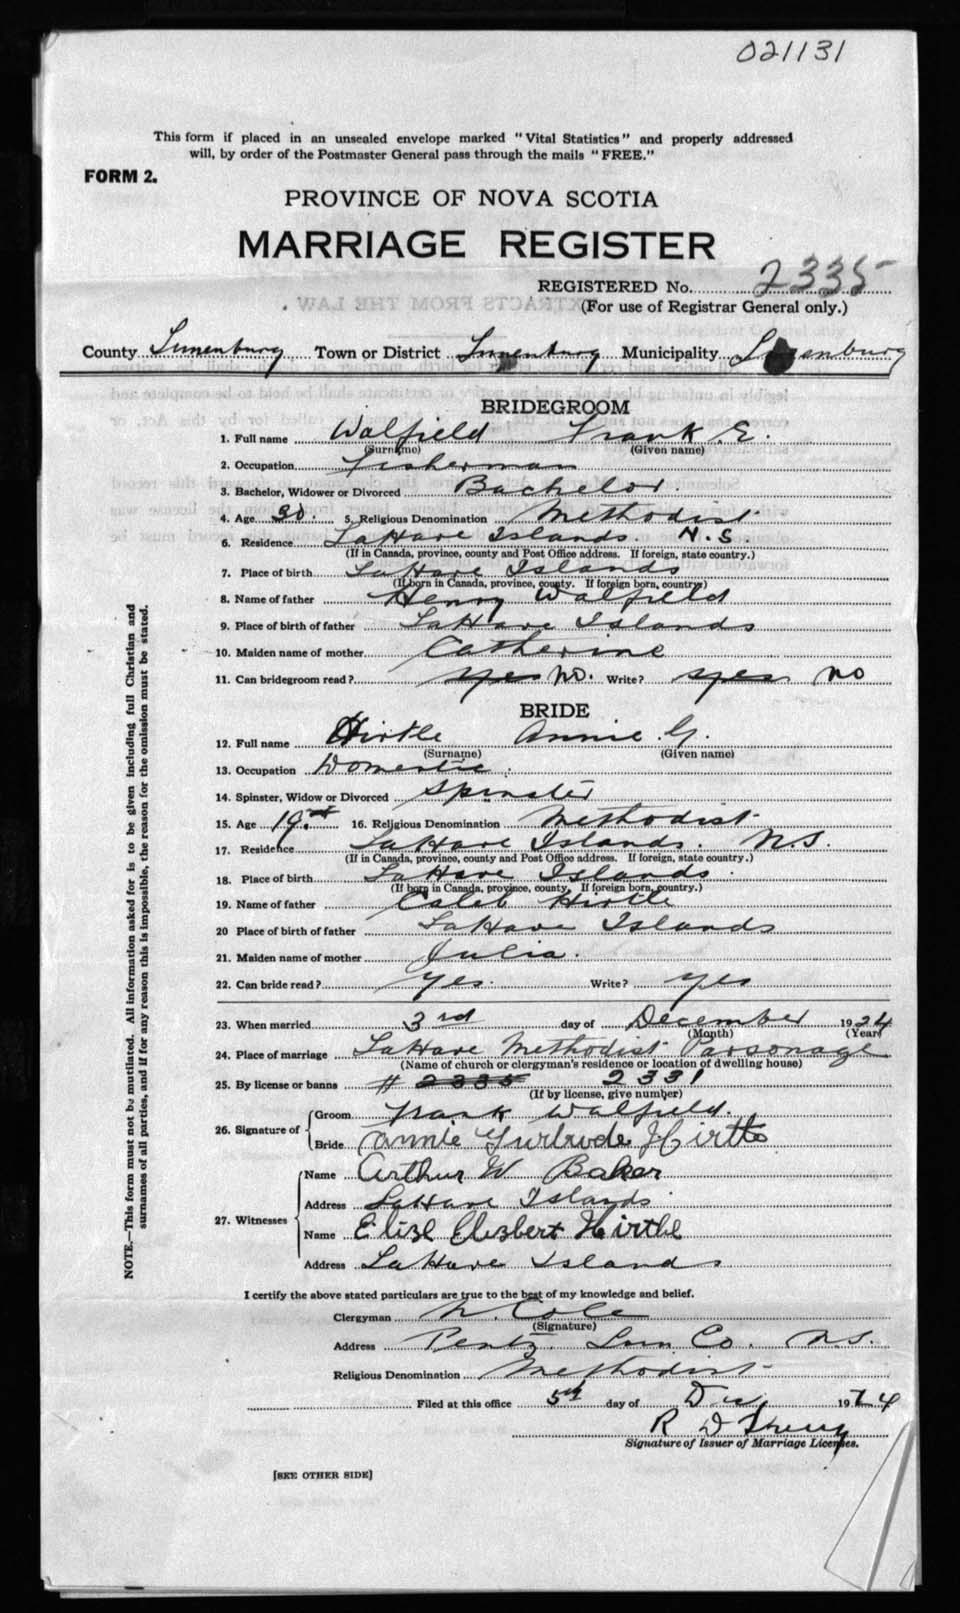 021131
This form if placed in an unsealed envelope marked "Vital Statistics" and properly addressed
will, by order of the Postmaster General pass through the mails "FREE."
FORM 2.
PROVINCE OF NOVA SCOTIA
MARRIAGE REGISTER
REGISTERED No. 2335
(For use of Registrar General only.)
County Lunenburg Town or District Lunenburg Municipality Lunenburg
BRIDEGROOM
1. Full name Walfield Frank E.
(Surname) (Given name)
2. Occupation Fisherman
3. Bachelor, Widower or Divorced Bachelor.
4. Age 30. 5. Religious Denomination Methodist
6. Residence LaHave Islands. N.S
(If in Canada, province, county and Post Office address. If foreign, state country.)
7. Place of birth LaHave Islands
(If born in Canada, province, county. If foreign born, country)
8. Name of father Henry Walfield
9. Place of birth of father LaHave Islands
10. Maiden name of mother Catherine
11. Can bridegroom read? yes No. Write? yes No
BRIDE
12. Full name Hirtle Annie G.
(Surname) (Given name)
13. Occupation Domestic.
14. Spinster, Widow or Divorced Spinster
15. Age 19. 16. Religious Denomination Methodist
17. Residence LaHave Islands. N.S.
(If in Canada, province, county and Post Office address. If foreign, state country.)
18. Place of birth LaHave Islands.
(If born in Canada, province, county. If foreign born, country.)
19. Name of father Caleb Hirtle
20 Place of birth of father LaHave Islands
21. Maiden name of mother Julia.
22. Can bride read? yes. Write? yes
23. When married 3rd day of December 1924
(Month) (Year)
24. Place of marriage LaHave Methodist Parsonage
(Name of church or clergyman's residence or location of dwelling house)
25. By license or banns # 2335 2331
(If by license, give number)
26. Signature of Groom Frank Walfield.
Bride Annie Gurtrude Hirtle
27. Witnesses Name Arthur W Baker
Address LaHave Islands
Name Elize Elezbert Hirthl
Address LaHave Islands
I certify the above stated particulars are true to the best of my knowledge and belief.
Clergyman Cole
(Signature)
Address Pentz. Lun Co. N.S.
Religious Denomination Methodist
Filed at this office 5th day of Dec 1924
R D
Signature of Issuer of Marriage Licenses.
[SEE OTHER SIDE]
NOTE.—This form must not be mutilated. All information asked for is to be given including full Christian and
surnames of all parties, and if for any reason this is impossible, the reason for the omission must be stated.